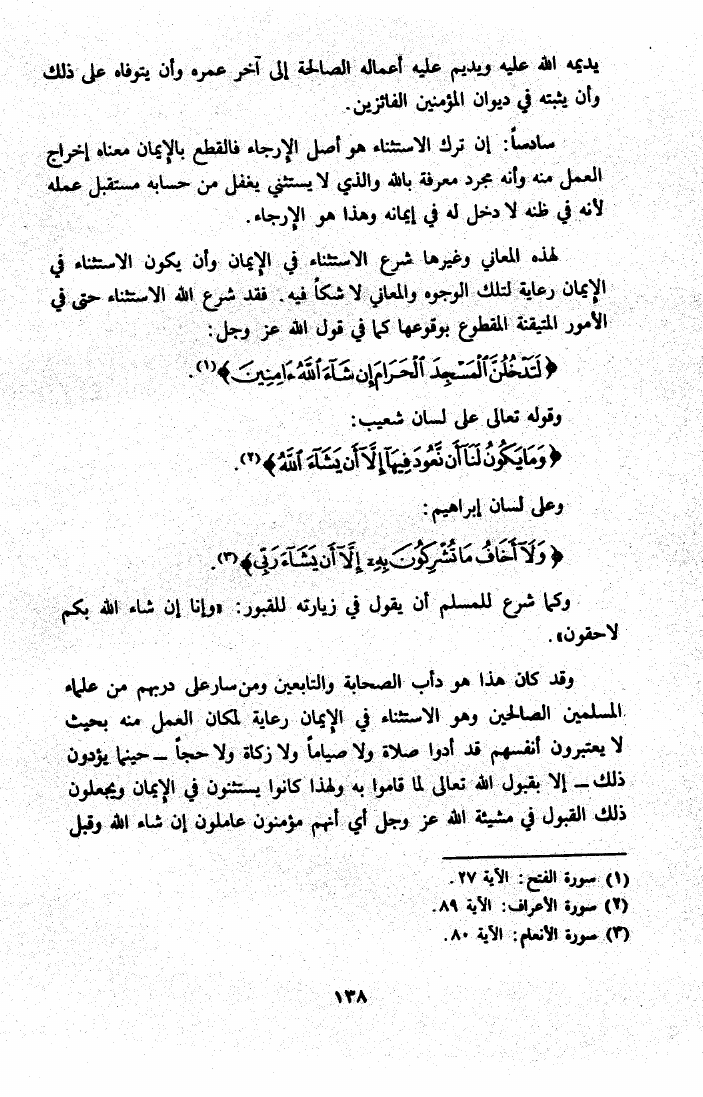 يديمه الله عليه ويديم عليه أعماله الصالحة إلى آخر عمره وأن يتوفاه على ذلك
وأن يثبته في ديوان المؤمنين الفائزين.
سادساً: إن ترك الاستثناء هو أصل الإرجاء فالقطع بالإيمان معناه إخراج
العمل منه وأنه مجرد معرفة بالله والذي لا يستثني يغفل من حسابه مستقبل عمله
لأنه في ظنه لا دخل له في إيمانه وهذا هو الإرجاء.
لهذه المعاني وغيرها شرع الاستثناء في الإيمان وأن يكون الاستثناء في
الإيمان رعاية لتلك الوجوه والمعاني لا شكاً فيه. فقد شرع الله الاستثناء حتى في
الأمور المتيقنة المقطوع بوقوعها كما في قول الله عز وجل:
﴿لَتَدْخُلُنَّ ٱلْمَسْجِدَ ٱلْحَرَامَ إِن شَآءَ ٱللَّهُ ءَامِنِينَ﴾(١).
وقوله تعالى على لسان شعيب:
﴿وَمَا يَكُونُ لَنَآ أَن نَّعُودَ فِيهَآ إِلَّآ أَن يَشَآءَ ٱللَّهُ﴾(٢).
وعلى لسان إبراهيم:
﴿وَلَآ أَخَافُ مَا تُشْرِكُونَ بِهِۦٓ إِلَّآ أَن يَشَآءَ رَبِّي﴾(٣).
وكما شرع للمسلم أن يقول في زيارته للقبور: «وإنا إن شاء الله بكم
لاحقون».
وقد كان هذا هو دأب الصحابة والتابعين ومن سار على دربهم من علماء
المسلمين الصالحين وهو الاستثناء في الإيمان رعاية لمكان العمل منه بحيث
لا يعتبرون أنفسهم قد أدوا صلاة ولا صياماً ولا زكاة ولا حجاً ـ حينما يؤدون
ذلك ـ إلا بقبول الله تعالى لما قاموا به ولهذا كانوا يستثنون في الإيمان ويجعلون
ذلك القبول في مشيئة الله عز وجل أي أنهم مؤمنون عاملون إن شاء الله وقبل
(١) سورة الفتح: الآية ٢٧.
(٢) سورة الأعراف: الآية ٨٩.
(٣) سورة الأنعام: الآية ٨٠.
١٣٨